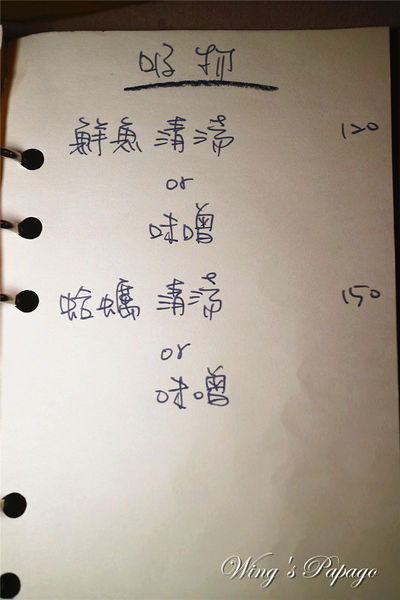 吸物
鮮魚 清湯 120
or
味噌
蛤蠣 清湯 150
or
味噌
Wing's Papago